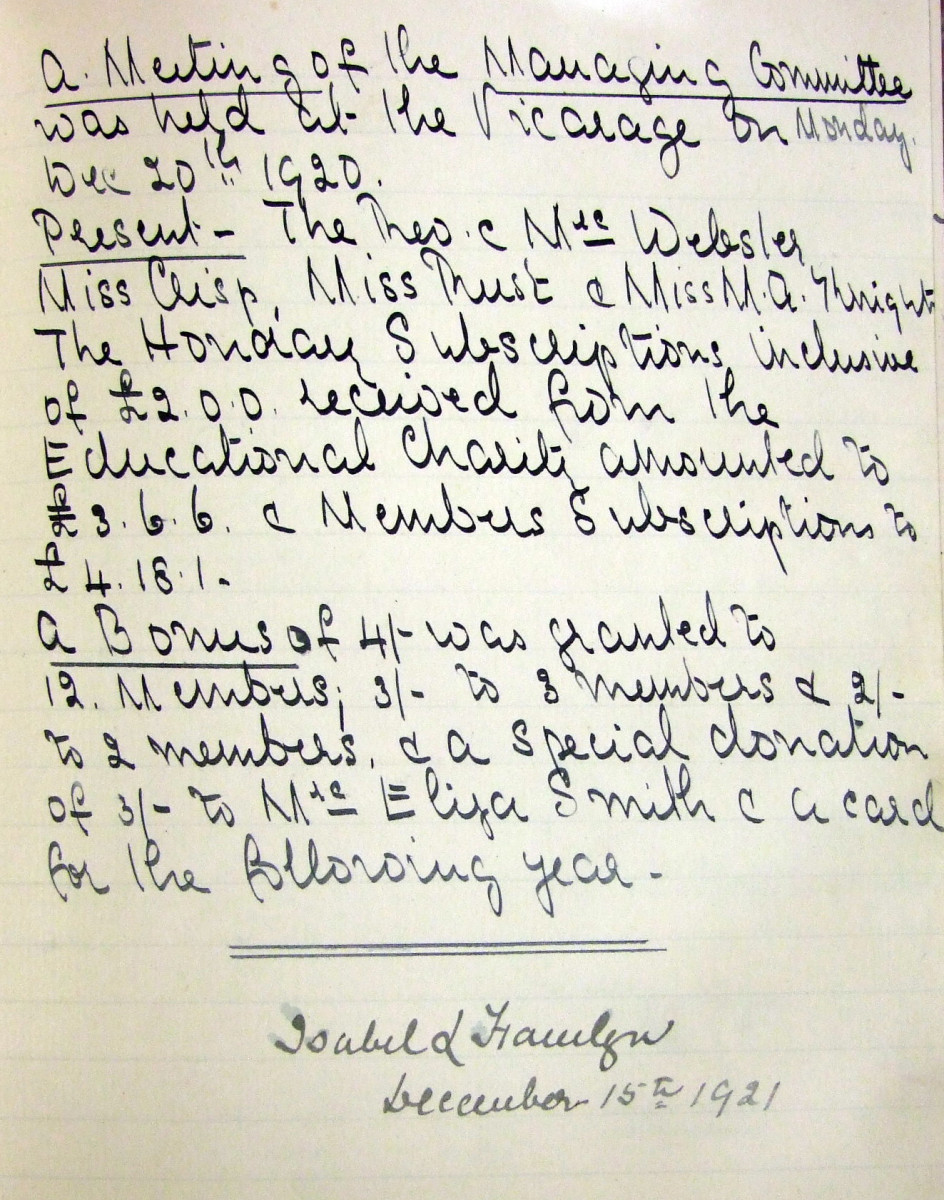 A Meeting of the Managing Committee
was held at the Vicarage on Monday.
Dec 20th 1920.
Present - The Revd. & Mrs Webster
Miss Crisp, Miss Trust & Miss M.A. Knight
The Honoray Subscriptions inclusive
of £2.0.0. received from the
Educational Charity amounted to
£3.6.6. & Members Subscriptions to
£4.18.1-
A Bonus of 4/- was granted to
12. Members; 3/- to 3 members & 2/-
to 2 members, & a special donation
of 3/- to Mrs Eliza Smith & a card
for the following year -
Isabel L Hamlyn
December 15th 1921